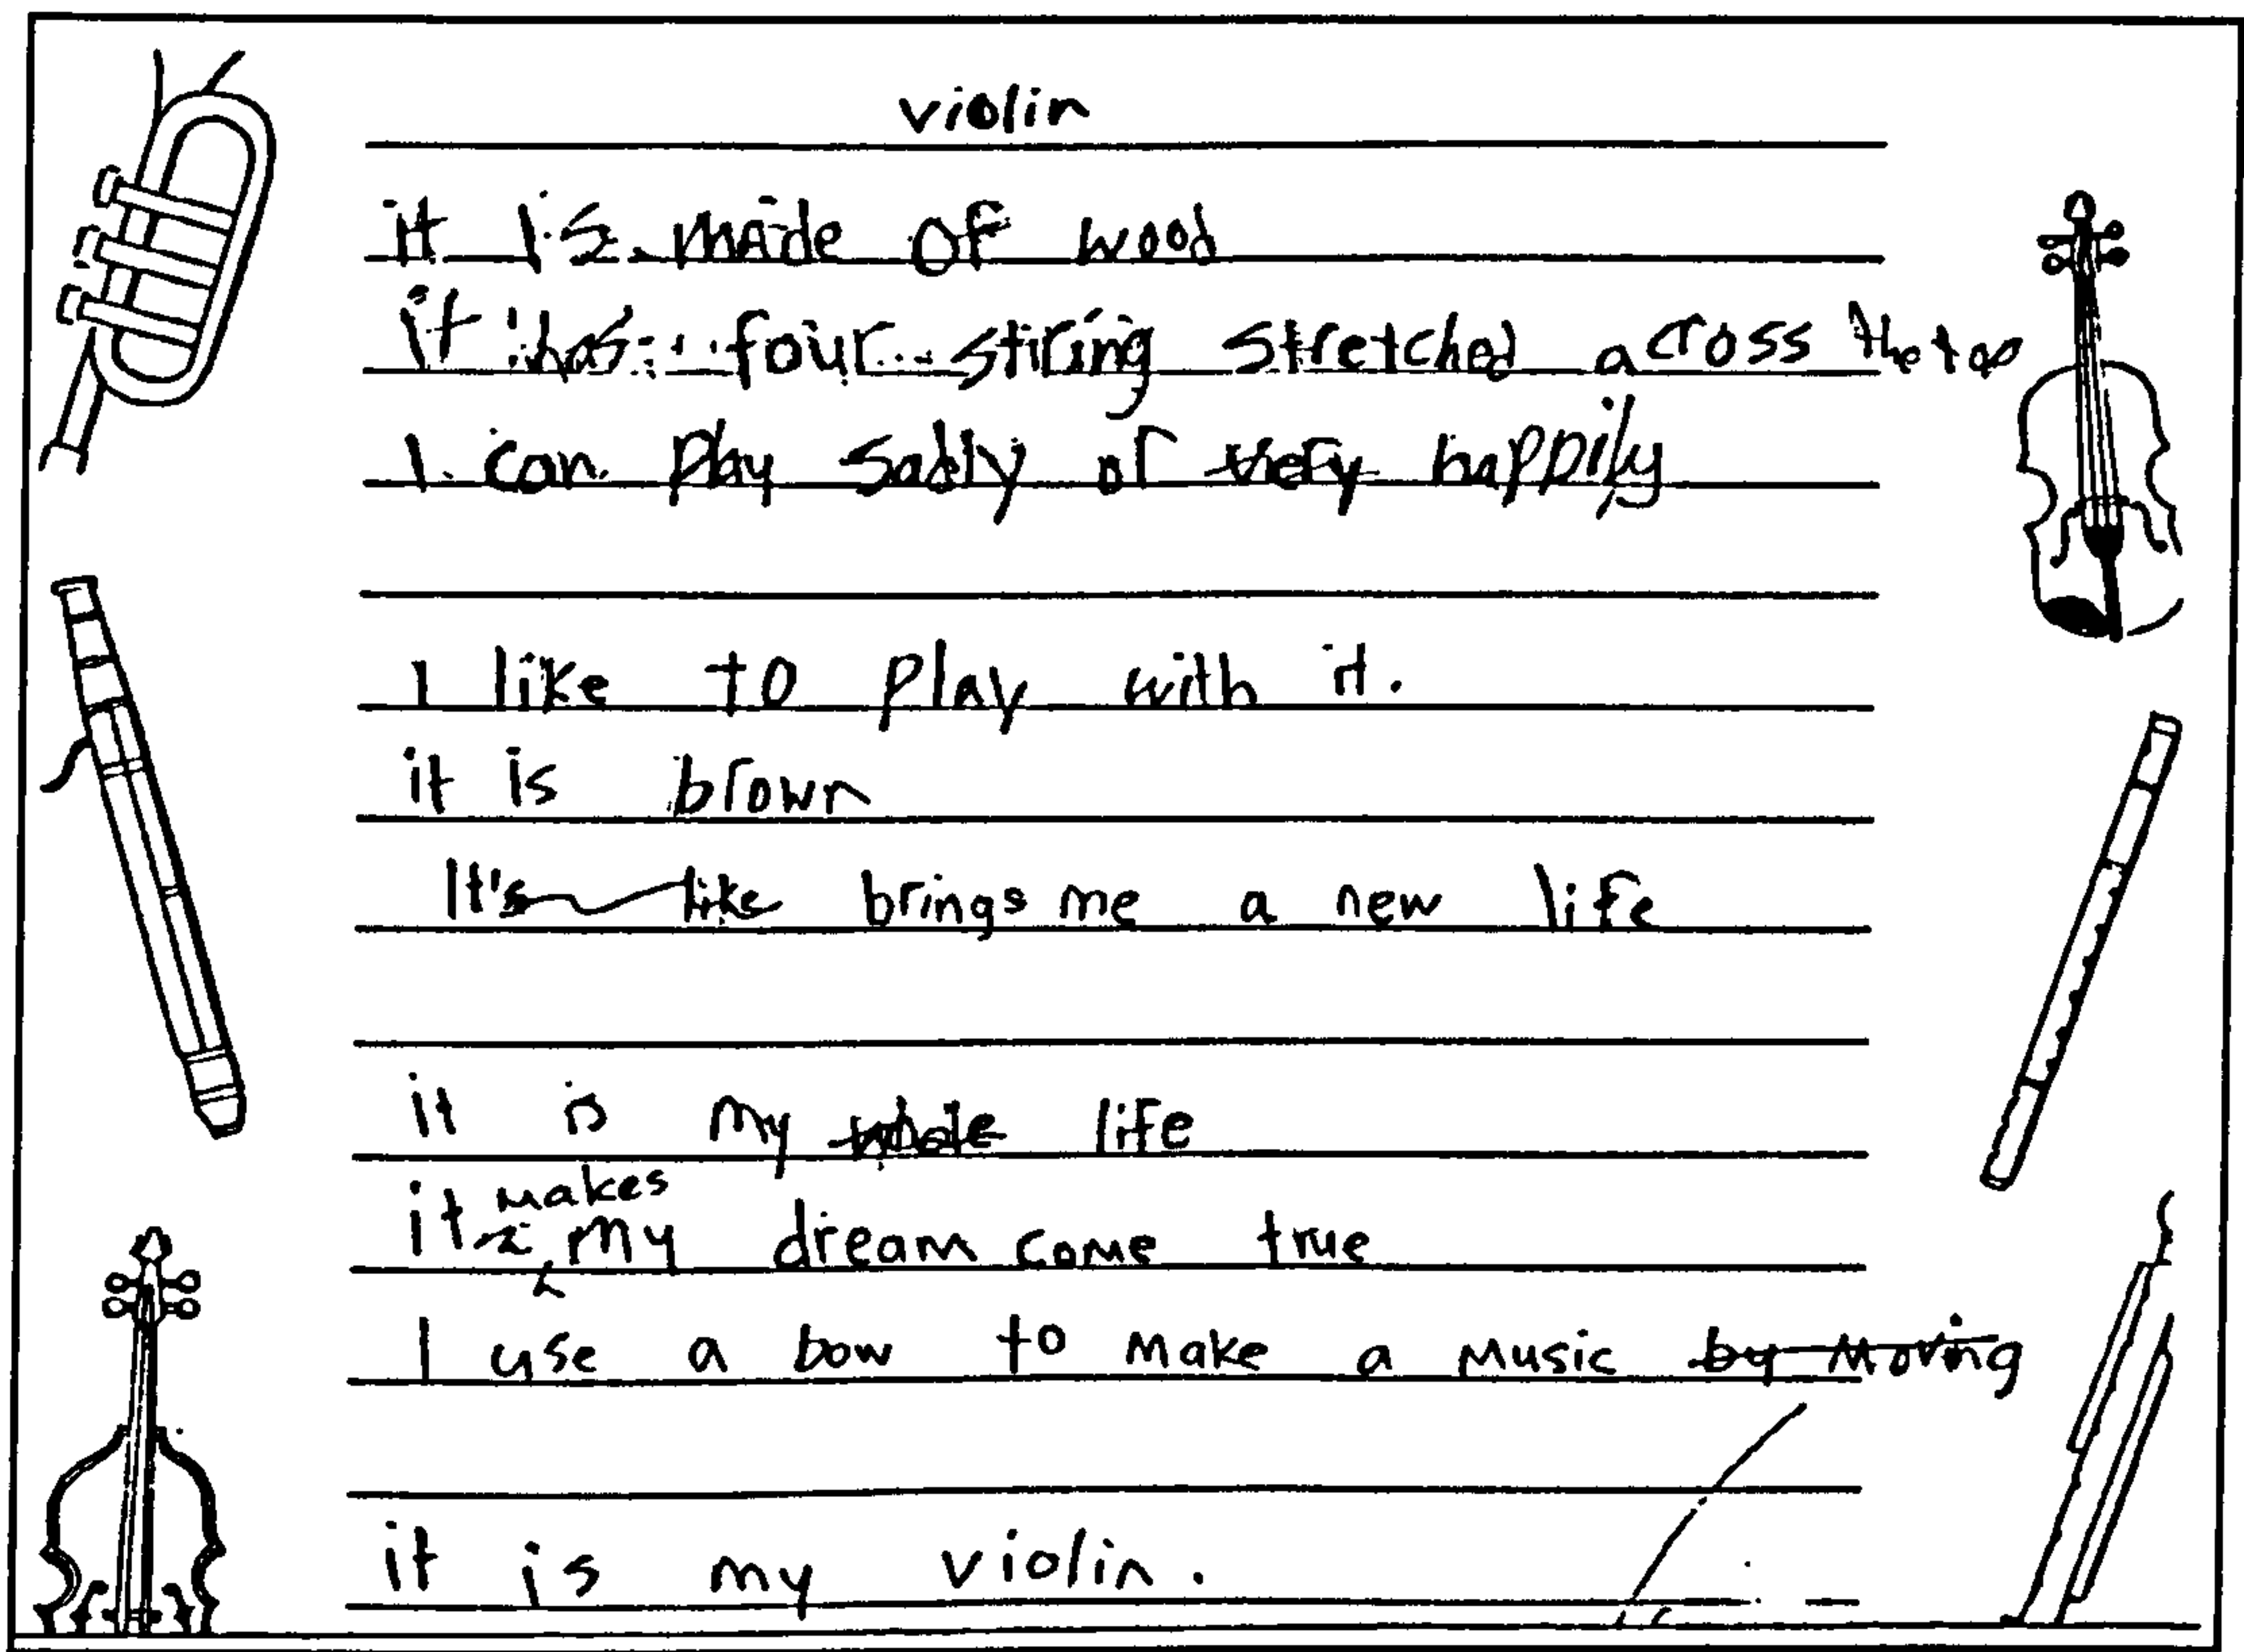 violin
it is made of wood
it has four stiring stretched across the top
I can play sadly or very happily
I like to play with it.
it is brown
It's like brings me a new life
it is my whole life
it is makes my dream come true
I use a bow to make a music by moving
it is my violin.